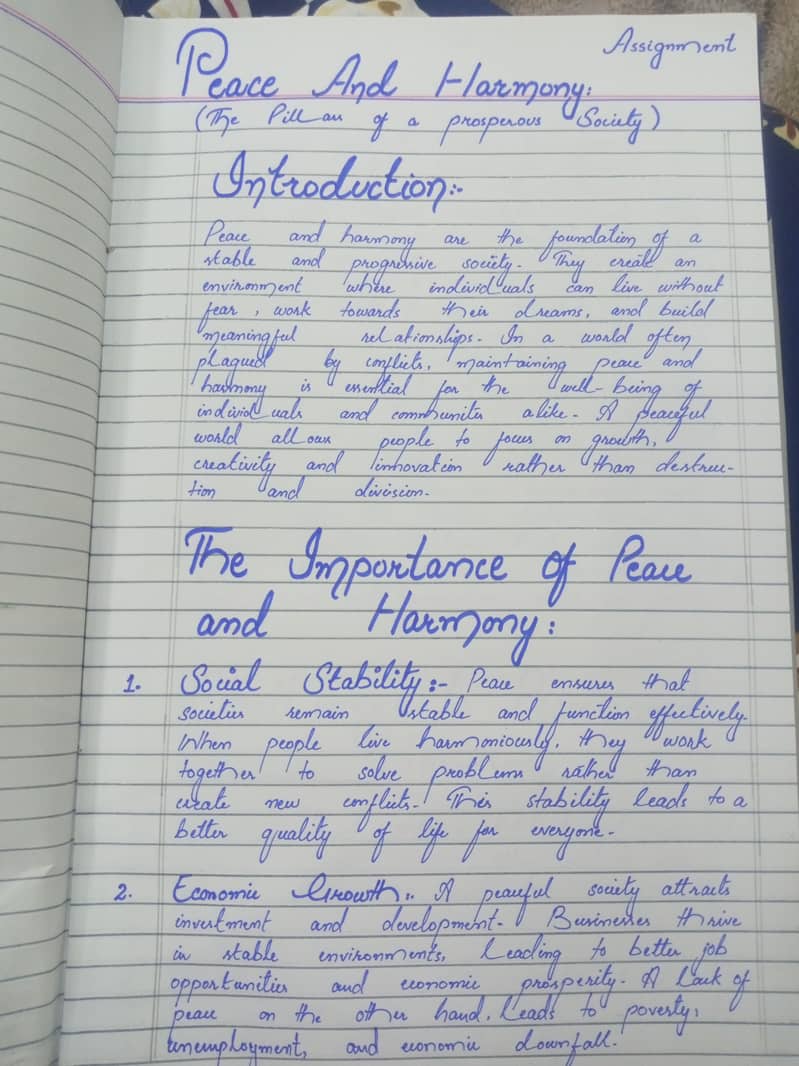 Assignment
Peace And Harmony:
(The Pillar of a prosperous Society)
Introduction:-
Peace and harmony are the foundation of a
stable and progressive society. They create an
environment where individuals can live without
fear, work towards their dreams, and build
meaningful relationships. In a world often
plagued by conflicts, maintaining peace and
harmony is essential for the well-being of
individuals and communites alike. A peaceful
world allows people to focus on growth,
creativity and innovation rather than destruc-
tion and division.
The Importance of Peace
and Harmony:
1. Social Stability:- Peace ensures that
societies remain stable and function effectively.
When people live harmoniously, they work
together to solve problems rather than
create new conflicts. This stability leads to a
better quality of life for everyone.
2. Economic Growth:. A peaceful society attracts
investment and development. Businesses thrive
in stable environments, leading to better job
opportunities and economic prosperity. A lack of
peace on the other hand, leads to poverty,
unemployment, and economic downfall.